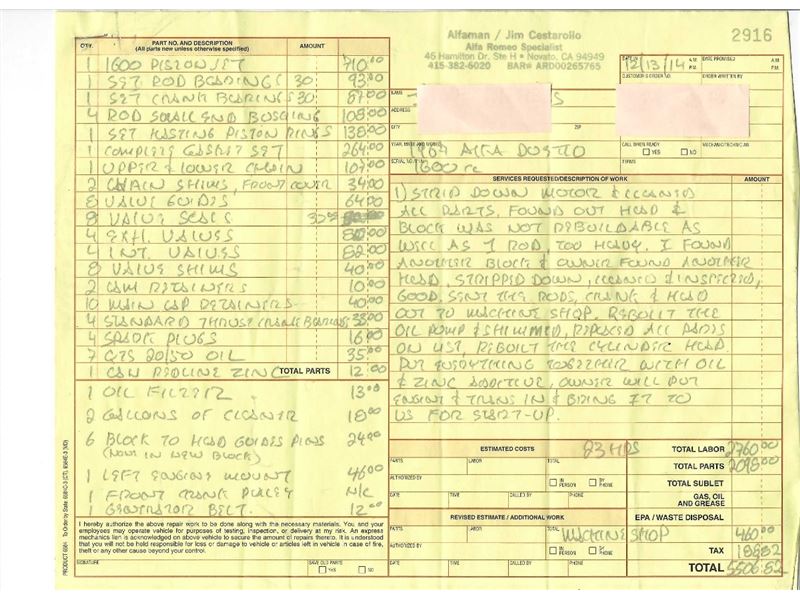 Alfaman / Jim Cestarollo
Alfa Romeo Specialist
45 Hamilton Dr. Ste H • Novato, CA 94949
415-382-6020 BAR# ARD00265765
2916
QTY. PART NO. AND DESCRIPTION AMOUNT
(All parts new unless otherwise specified)
1 1600 PISTON SET 710.00
1 SET ROD BEARINGS 30 93.00
1 SET CRANK BEARINGS 30 87.00
4 ROD SMALL END BUSHING 108.00
1 SET HASTING PISTON RINGS 138.00
1 COMPLETE GASKET SET 264.00
1 UPPER & LOWER CHAIN 107.00
2 CHAIN SHIMS, FRONT COVER 34.00
8 VALVE GUIDES 64.00
8 VALVE SEALS 30.00
4 EXH. VALVES 80.00
4 INT. VALVES 82.00
8 VALVE SHIMS 40.00
2 CAM RETAINERS 10.00
10 MAIN CAP RETAINERS 40.00
4 STANDARD THRUST CRANK BEARING 38.00
4 SPARK PLUGS 16.00
7 QTS 20/50 OIL 35.00
1 CAN REDLINE ZINC TOTAL PARTS 12.00
1 OIL FILTER 13.00
2 GALLONS OF CLEANER 18.00
6 BLOCK TO HEAD GUIDES PINS 24.00
(NOW IN NEW BLOCK)
1 LEFT ENGINE MOUNT 46.00
1 FRONT CRANK PULLEY N/C
1 GENERATOR BELT. 12.00
I hereby authorize the above repair work to be done along with the necessary materials. You and your
employees may operate vehicle for purposes of testing, inspection, or delivery at my risk. An express
mechanics lien is acknowledged on above vehicle to secure the amount of repairs thereto. It is understood
that you will not be held responsible for loss or damage to vehicle or articles left in vehicle in case of fire,
theft or any other cause beyond your control.
SIGNATURE SAVE OLD PARTS
YES NO
12/13/14 A.M. P.M. DATE PROMISED A.M. P.M.
CUSTOMER'S ORDER NO. ORDER WRITTEN BY
NAME
S
ADDRESS
CITY ZIP
CALL WHEN READY
YES NO
YEAR, MAKE AND MODEL ALFA DUETTO
SERIAL NO. 1600 cc
TERMS
SERVICES REQUESTED/DESCRIPTION OF WORK AMOUNT
1) STRIP DOWN MOTOR & CLEANED
ALL PARTS, FOUND OUT HEAD &
BLOCK WAS NOT REBUILDABLE AS
WELL AS 1 ROD, TOO HEAVY. I FOUND
ANOTHER BLOCK & OWNER FOUND ANOTHER
HEAD, STRIPPED DOWN, CLEANED & INSPECTED,
GOOD, SENT THE RODS, CRANK & HEAD
OUT TO MACHINE SHOP, REBUILT THE
OIL PUMP & SHIMMED, REPLACED ALL PARTS
ON LIST, REBUILT THE CYLINDER HEAD
PUT EVERYTHING TOGETHER WITH OIL
& ZINC ADDITIVE, OWNER WILL PUT
ENGINE & TRANS IN & BRING IT TO
US FOR START-UP.
ESTIMATED COSTS 23 HRS TOTAL LABOR 2760.00
PARTS LABOR TOTAL TOTAL PARTS 2098.00
AUTHORIZED BY IN PERSON BY PHONE TOTAL SUBLET
DATE TIME CALLED BY PHONE GAS, OIL AND GREASE
REVISED ESTIMATE / ADDITIONAL WORK EPA / WASTE DISPOSAL
PARTS LABOR TOTAL MACHINE SHOP 460.00
AUTHORIZED BY IN PERSON BY PHONE TAX 188.82
DATE TIME CALLED BY PHONE TOTAL 5506.82